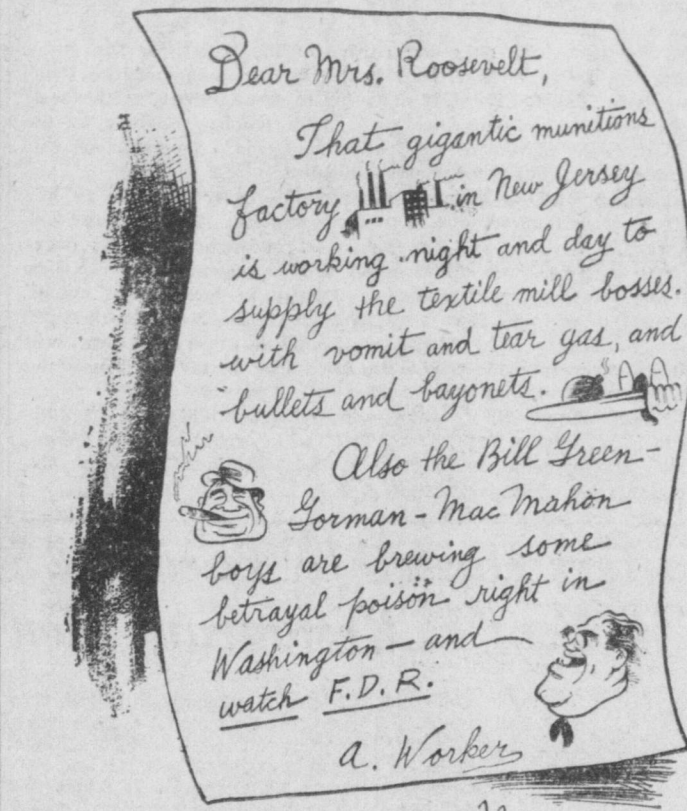 Dear Mrs. Roosevelt,
That gigantic munitions
factory in New Jersey
is working night and day to
supply the textile mill bosses.
with vomit and tear gas, and
bullets and bayonets.
Also the Bill Green-
Gorman-MacMahon
boys are brewing some
betrayal poison right in
Washington - and
watch F.D.R.
A. Worker